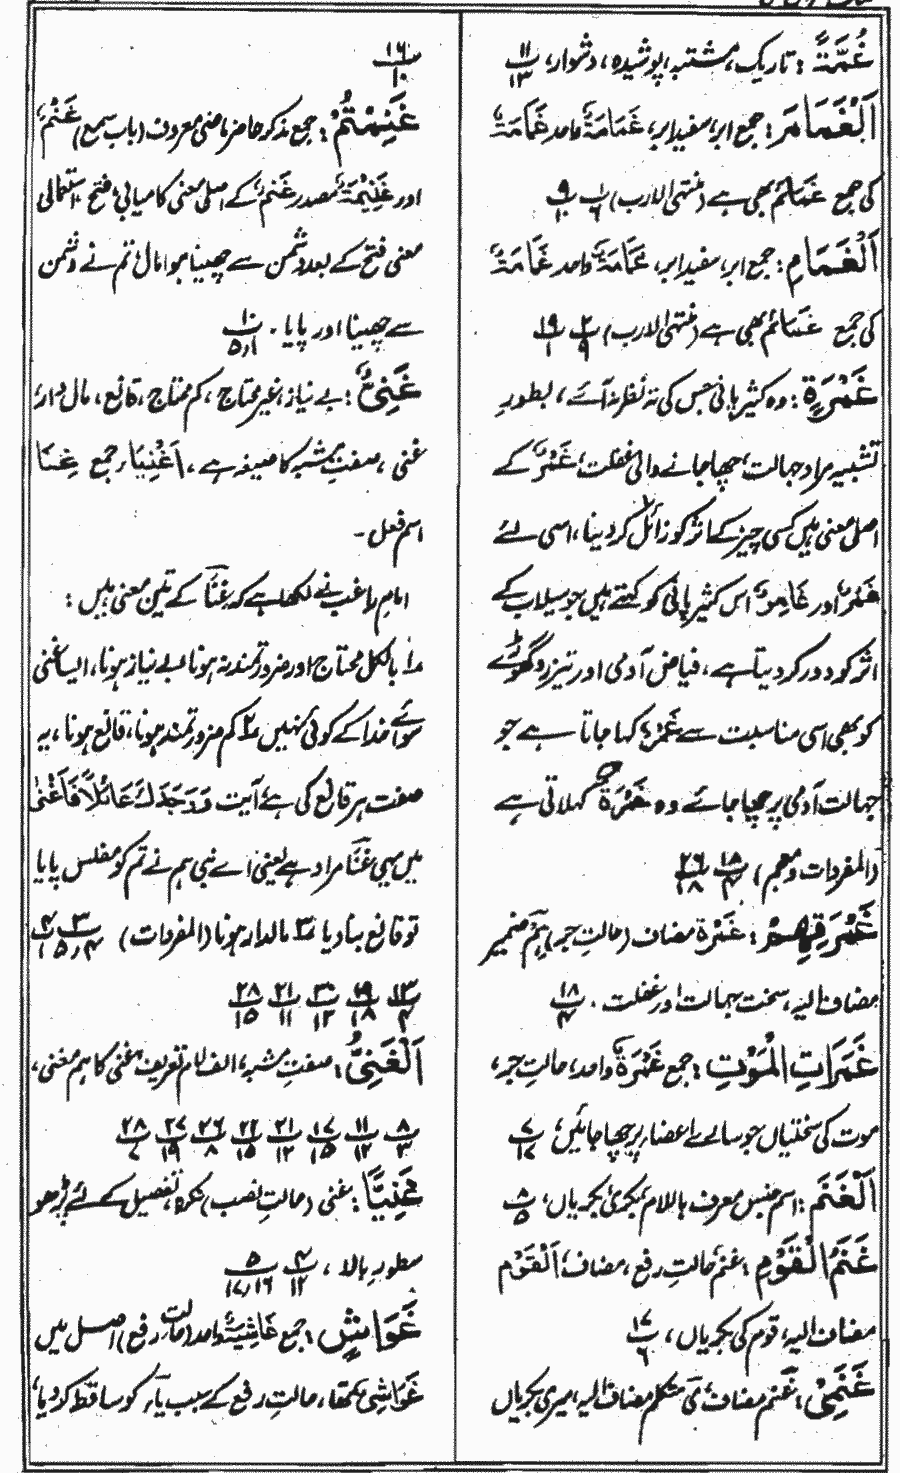 غُمَّةً : تاریک، مشتبہ، پوشیدہ، دشوار، ۱۱/۱۳
اَلْغَمَامَ : جمع ابر، سفید ابر، غَمَامَۃٌ واحد غَمَامَۃٌ
کی جمع غَمَائم بھی ہے (منتہی الارب) ۱/۶ ۹/۱۰
اَلْغَمَامِ : جمع ابر، سفید ابر، غَمَامَۃٌ واحد غَمَامَۃٌ
کی جمع غمائم بھی ہے (منتہی الارب) ۲/۹ ۱۹/۱
غَمْرَةٍ : وہ کثیر پانی جس کی تہ نظر نہ آئے، بطور
تشبیہ مراد جہالت، چھا جانے والی غفلت، غَمْرٌ کے
اصل معنی ہیں کسی چیز کے اثر کو زائل کر دینا، اسی لئے
غَمْرٌ اور غَامِرٌ اس کثیر پانی کو کہتے ہیں جو سیلاب کے
اثر کو دور کر دیتا ہے، فیاض آدمی اور تیز رو گھوڑے
کو بھی اسی مناسبت سے غَمْرٌ کہا جاتا ہے جو
جہالت آدمی پر چھا جائے وہ غَمْرَۃٌ کہلاتی ہے
(المفردات و معجم) ۱۸/۴ ۲۶/۱۸
غَمْرَتِهِمْ : غَمْرَۃ مضاف (حالتِ جر) ہِمْ ضمیر
مضاف الیہ، سخت جہالت اور غفلت ۔ ۱۸/۴
غَمَرَاتِ الْمَوْتِ : جمع غَمْرَۃٌ واحد، حالتِ جر،
موت کی سختیاں جو سارے اعضاء پر چھا جائیں، ۷/۱۷
اَلْغَنَمِ : اسم جنس معرف باللام بکری بکریاں، ۸/۵
غَنَمُ الْقَوْمِ : غنم حالتِ رفع، مضاف، اَلْقَوْم
مضاف الیہ، قوم کی بکریاں، ۱۷/۶
غَنَمِیْ : غنم مضاف، ی متکلم مضاف الیہ، میری بکریاں
۱۶/۱۰
غَنِمْتُمْ : جمع مذکر حاضر ماضی معروف (باب سمع) غَنْمٌ
اور غَنِیْمَۃٌ مصدر غَنْمٌ کے اصلی معنی کامیابی، فتح استعمالی
معنی فتح کے بعد دشمن سے چھینا ہوا مال تم نے دشمن
سے چھینا اور پایا ۔ ۱۰/۵،۱
غَنِیٌّ : بے نیاز، غیر محتاج، کم محتاج، قانع، مال دار،
غنی، صفتِ مشبہ کا صیغہ ہے، اَغْنِیَاء جمع غِنَا
اسم فعل ۔
امام راغب نے لکھا ہے کہ غِنًا کے تین معنی ہیں :
۱ بالکل محتاج اور ضرورتمند نہ ہونا بے نیاز ہونا، ایسا غنی
سوائے خدا کے کوئی نہیں ۲ کم ضرورتمند ہونا، قانع ہونا، یہ
صفت ہر قانع کی ہے، آیت وَوَجَدَكَ عَائِلًا فَاَغْنٰى
میں یہی غنا مراد ہے یعنی اے نبی ہم نے تم کو مفلس پایا
تو قانع بنا دیا ۳ مالدار ہونا (المفردات) ۳/۴،۵ ۴/۱
۱۳/۴ ۱۹/۱۸ ۳۰/۱۲ ۲۱/۱۱ ۲۸/۱۵
اَلْغَنِیُّ : صفتِ مشبہ، الف لام تعریف غنی کا ہم معنی،
۸/۲ ۱۱/۱۲ ۱۷/۱۵ ۲۱/۱۲ ۲۲/۱۵ ۲۶/۸ ۲۷/۱۹ ۲۸/۷
غَنِيًّا : غنی (حالتِ نصب) نکرہ، تفصیل کے لئے پڑھو
سطورِ بالا، ۴/۱۲ ۵/۱۷،۱۶
غَوَاشٍ : جمع غَاشِیَۃٌ واحد (حالت رفع) اصل میں
غَوَاشِیُ تھا، حالتِ رفع کے سبب یاء کو ساقط کر دیا،